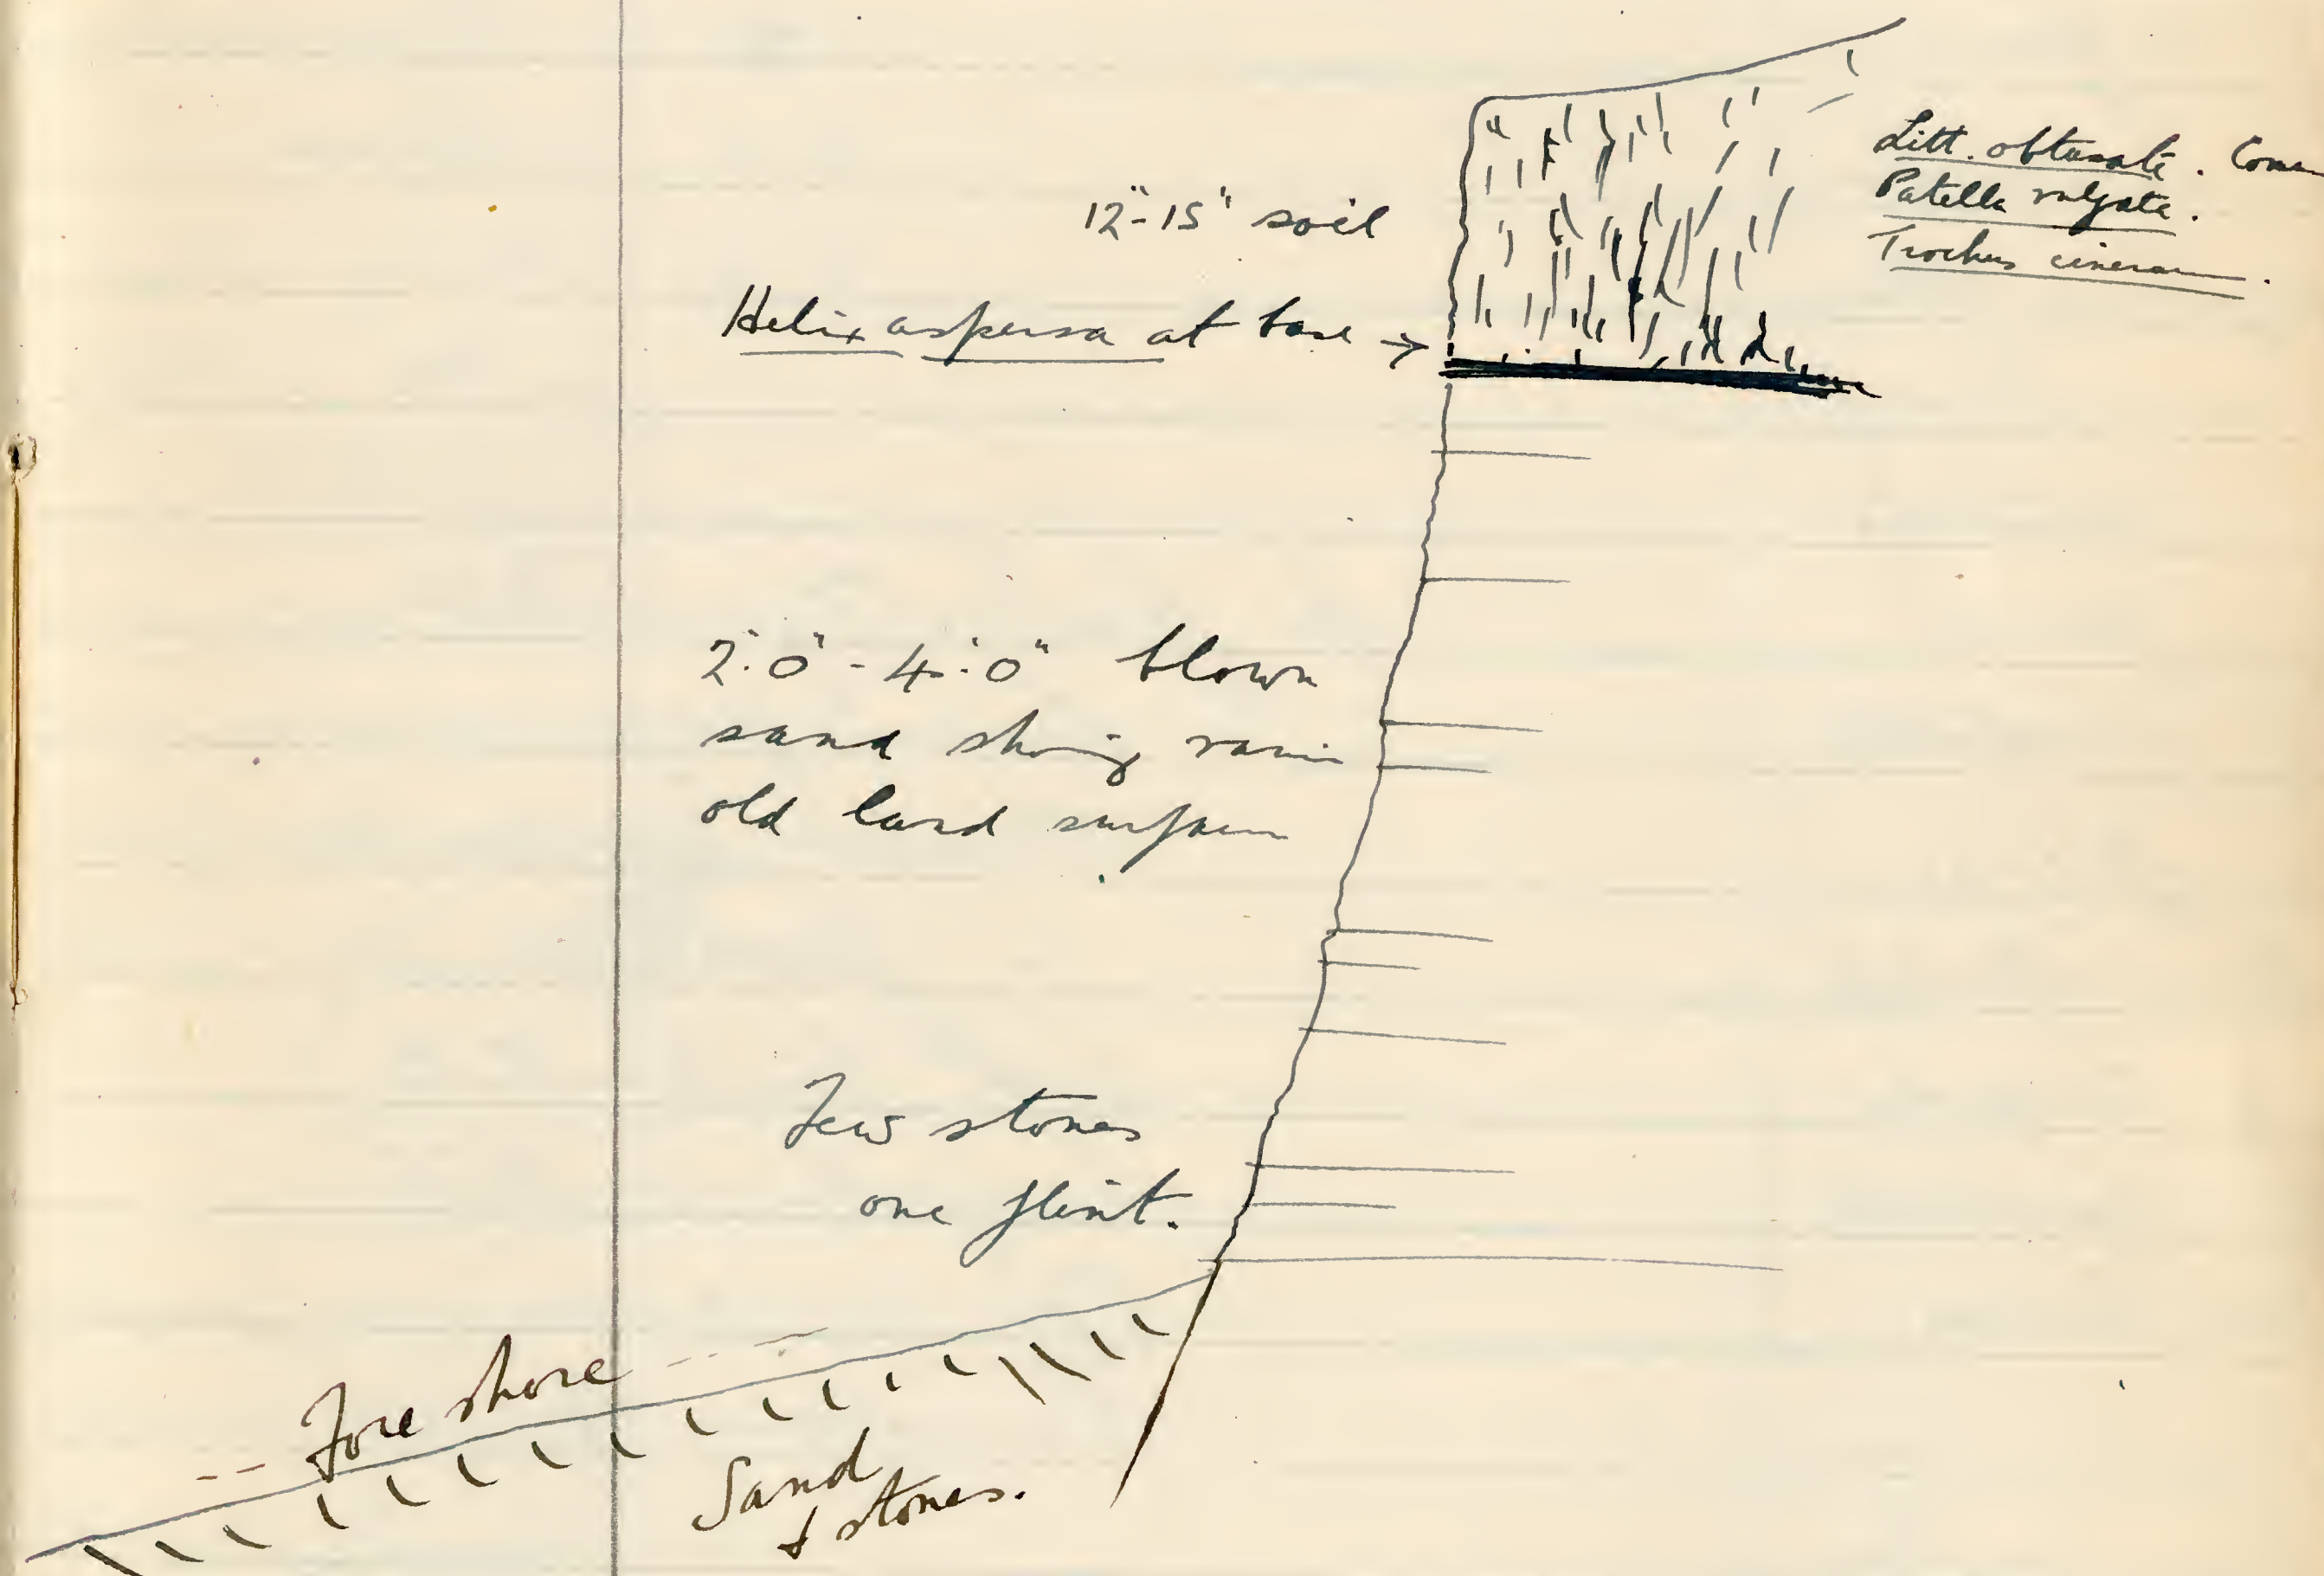 Litt. obtusata.
Patella vulgata.
Trochus
12"-15" soil
Helix aspersa at base →
2'.0" - 4'.0" blown
sand showing
old land surfaces
Few stones
one flint.
Fore shore
Sand
& stones.